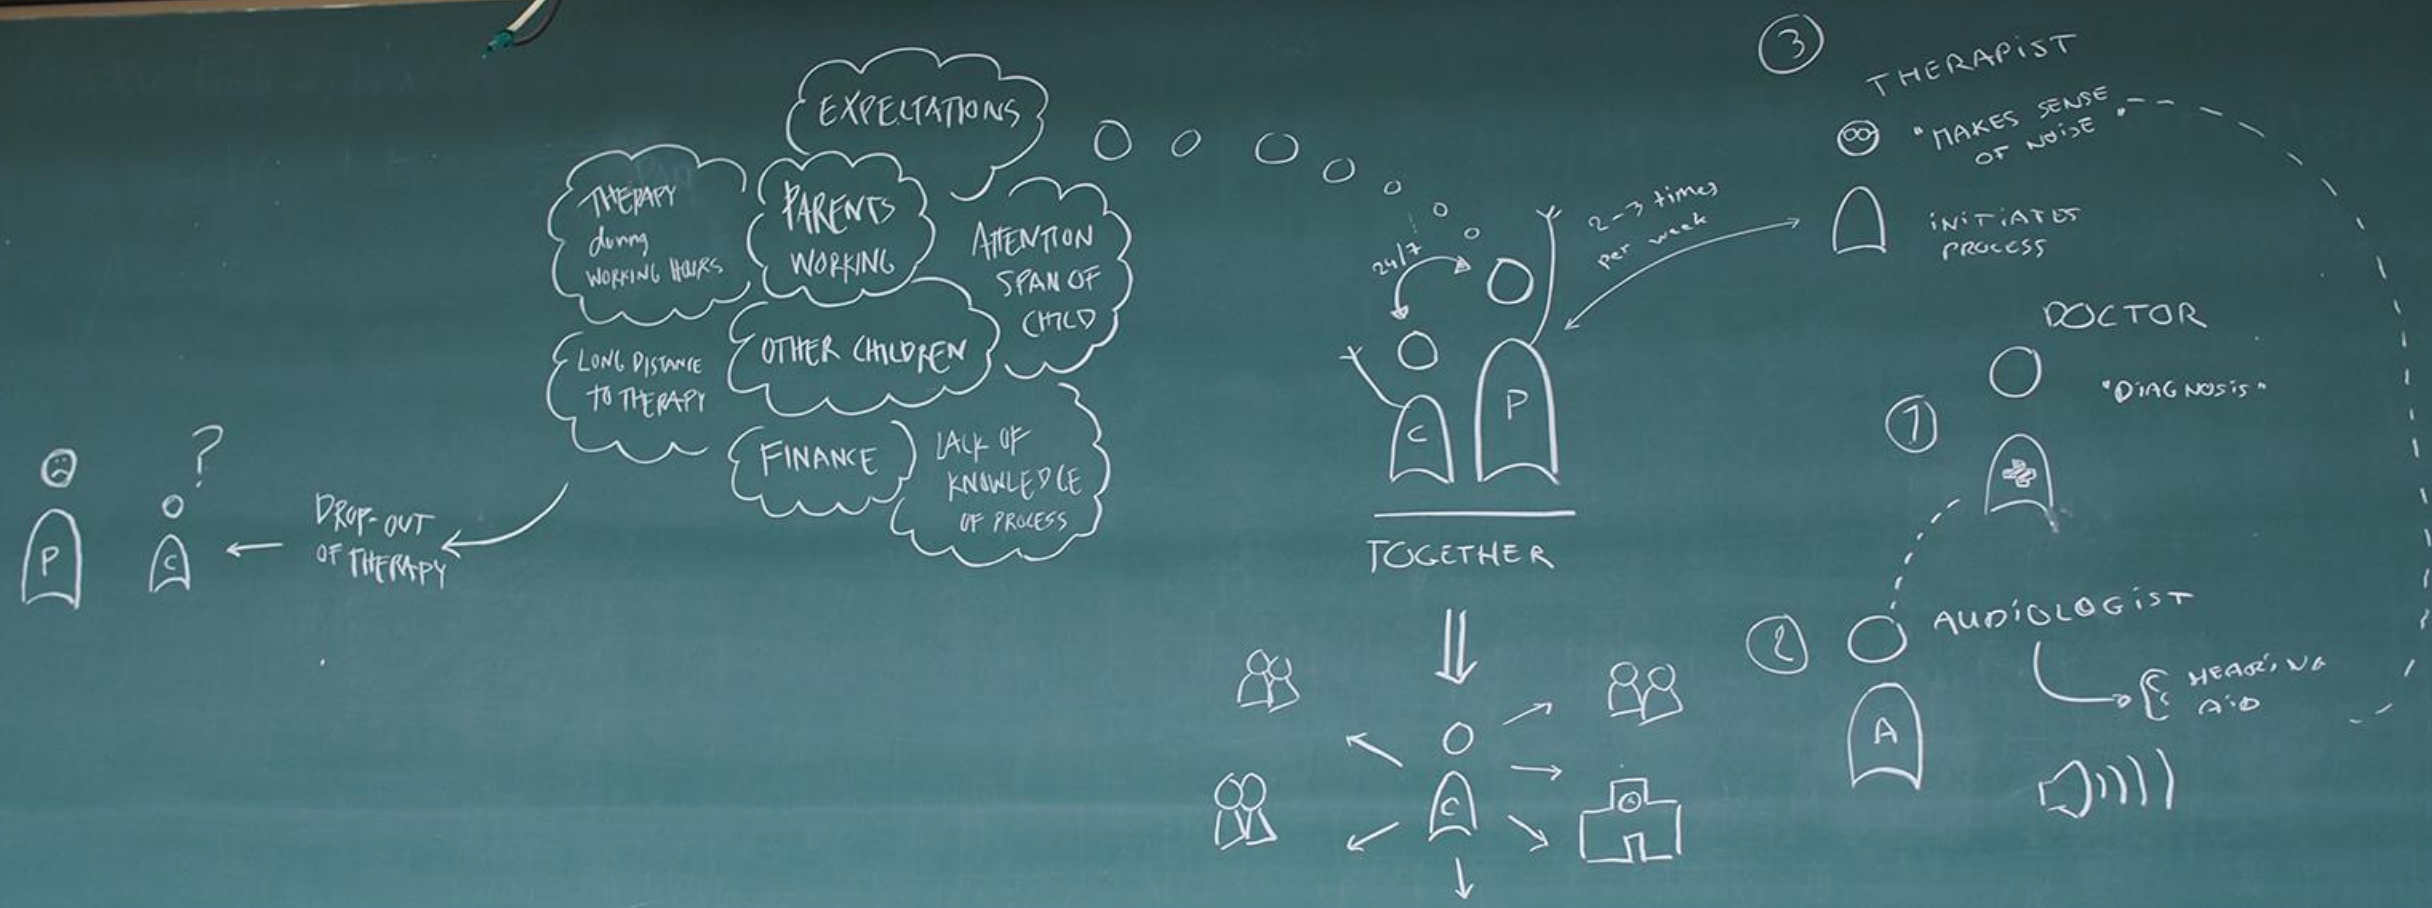 EXPECTATIONS
THERAPY
during
WORKING HOURS
PARENTS
WORKING
ATTENTION
SPAN OF
CHILD
LONG DISTANCE
TO THERAPY
OTHER CHILDREN
FINANCE
LACK OF
KNOWLEDGE
OF PROCESS
DROP-OUT
OF THERAPY
?
P
C
24/7
C
P
TOGETHER
C
2-3 times
per week
3
THERAPIST
"MAKES SENSE
OF NOISE"
INITIATES
PROCESS
DOCTOR
"DIAGNOSIS"
1
2
AUDIOLOGIST
A
HEARING
AID